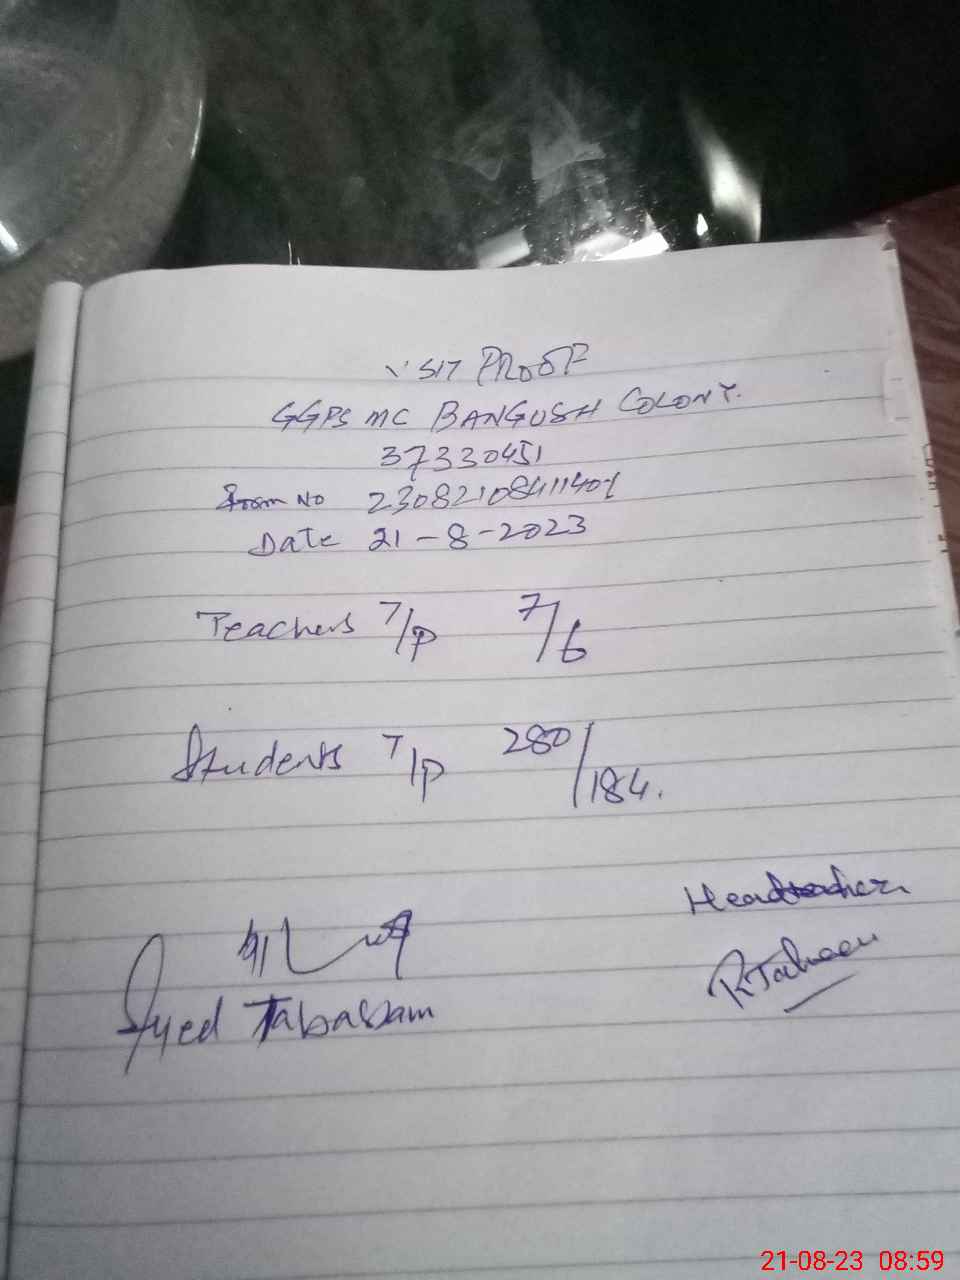 VISIT PROOF
GGPS MC BANGUSH COLONY.
37330451
Date 21-8-2023
Teachers T/P 7/6
Students T/P 280/184.
Headteacher
Syed Tabassam
21-08-23 08:59